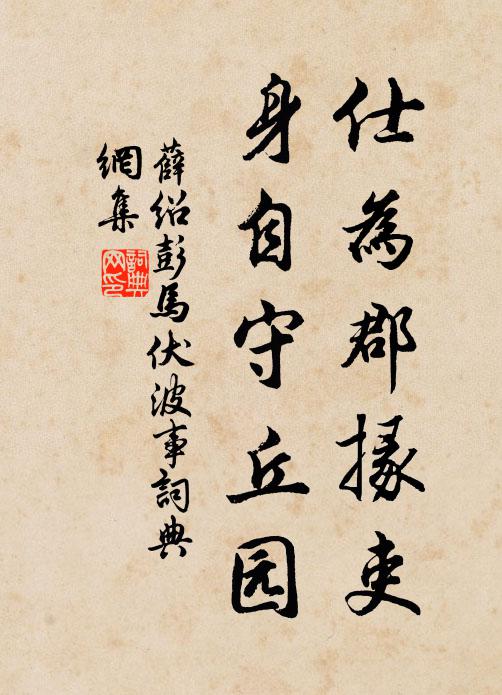 仕為郡掾吏
身自守丘园
薛绍彭馬伏波事詞典
網集
詞典
网印